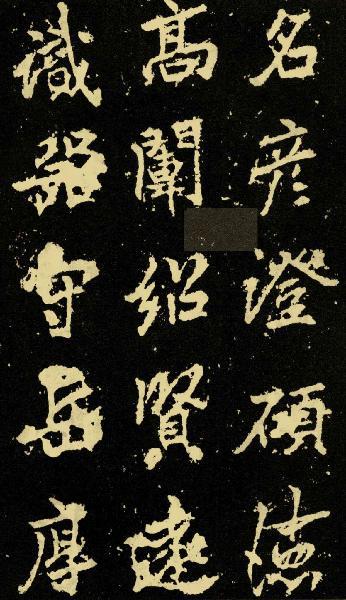 名彦澄碩德
高闡紹賢遠
識器守岳厚